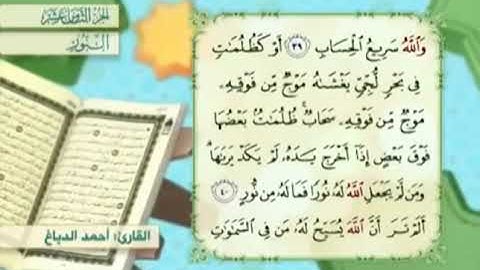 الجزء الثامن عشر
النور
وَاللَّهُ سَرِيعُ الْحِسَابِ ٣٩ أَوْ كَظُلُمَاتٍ
فِي بَحْرٍ لُّجِّيٍّ يَغْشَاهُ مَوْجٌ مِّن فَوْقِهِ
مَوْجٌ مِّن فَوْقِهِ سَحَابٌ ۚ ظُلُمَاتٌ بَعْضُهَا
فَوْقَ بَعْضٍ إِذَا أَخْرَجَ يَدَهُ لَمْ يَكَدْ يَرَاهَا ۗ
وَمَن لَّمْ يَجْعَلِ اللَّهُ لَهُ نُورًا فَمَا لَهُ مِن نُّورٍ ٤٠
أَلَمْ تَرَ أَنَّ اللَّهَ يُسَبِّحُ لَهُ مَن فِي السَّمَاوَاتِ
القارئ: أحمد الدباغ